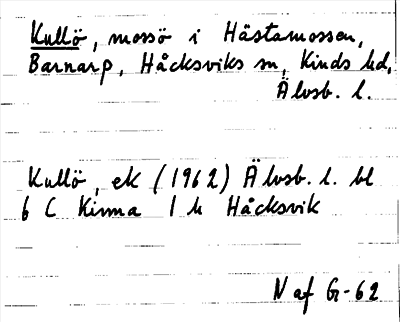 Kullö, mossö i Hästamossen,
Barnarp, Håcksviks sn, Kinds hd,
Älvsb. l.
Kullö, ek (1962) Älvsb. l. bl
6 C Kinna 1 h Håcksvik
N af G-62